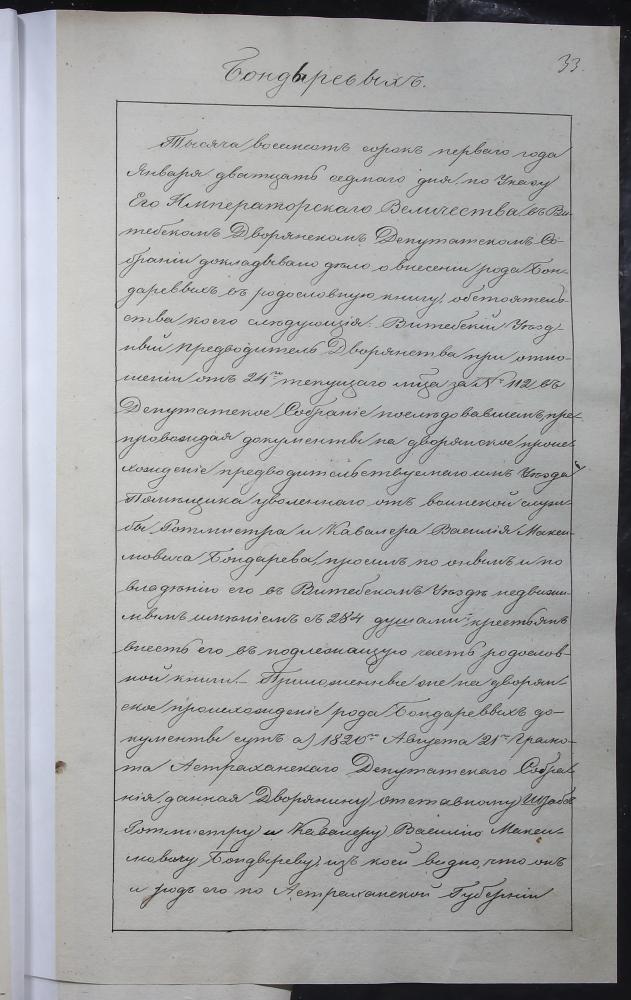 33.
Бондыревыхъ.
Тысяча восемсотъ сорокъ перваго года
Января дватцать седмаго дня, по Указу
Его Императорскаго Величества въ Ви-
тебскомъ Дворянскомъ Депутатскомъ Со-
браніи докладывано дѣло о внесеніи рода Бон-
даревыхъ въ родословную книгу, обстоятель-
ства коего слѣдующія: Витебскій Уѣзд-
ный Предводитель Дворянства при отно-
шеніи отъ 24го текущаго м̃ца за № 112, въ
Депутатское Собраніе послѣдовавшемъ, пре-
провождая документы на дворянское проис-
хожденіе предводительствуемаго имъ Уѣзда
Помѣщика уволеннаго отъ воинской служ-
бы Ротмистра и Кавалера Василія Макси-
мовича Бондарева, просилъ по онымъ и по
владѣнію его въ Витебскомъ Уѣздѣ недвижи-
мымъ имѣніемъ съ 284 душами крестьянъ
внесть его въ подлежащую часть родослов-
ной книги. – Приложенные же на дворян-
ское происхожденіе рода Бондаревыхъ до-
кументы суть: а) 1820го Августа 21го Грамо-
та Астраханскаго Депутатскаго Собра-
нія, данная Дворянину, отставному Штабъ
Ротмистру и Кавалеру Василію Макси-
мовичу Бондыреву, изъ коей видно, что онъ
и родъ его по Астраханской Губерніи